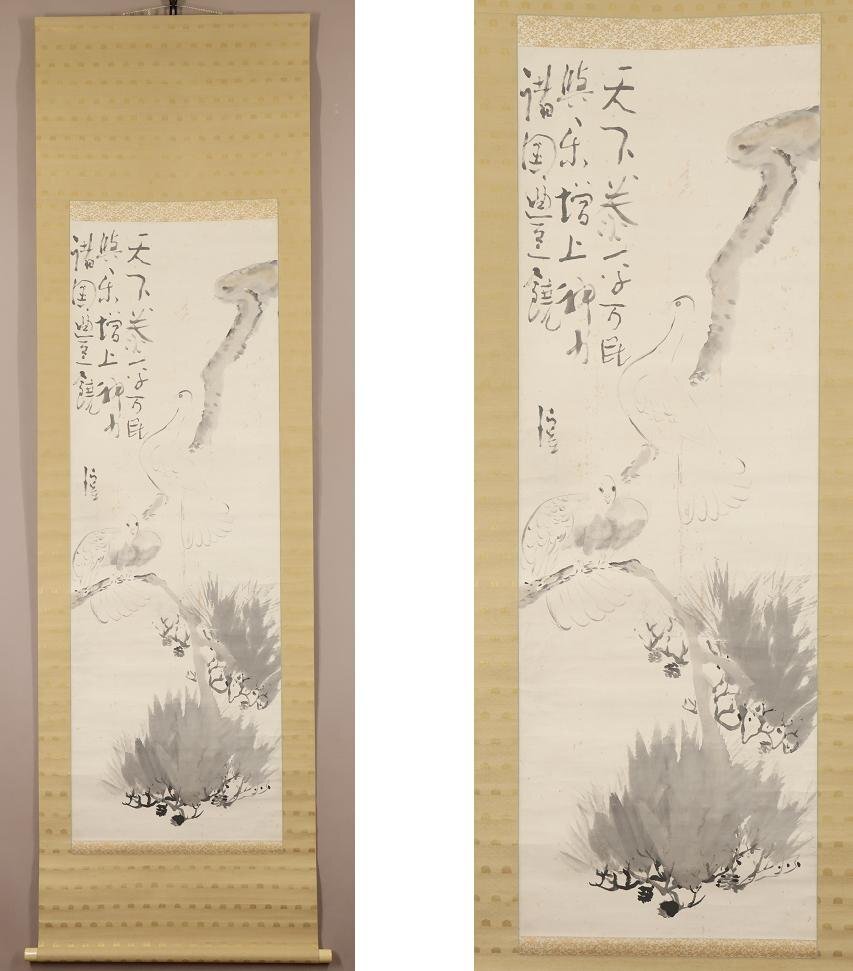 天下泰平万民
與乐増上神力
諸国豊饒
天下泰平万民
與乐増上神力
諸国豊饒